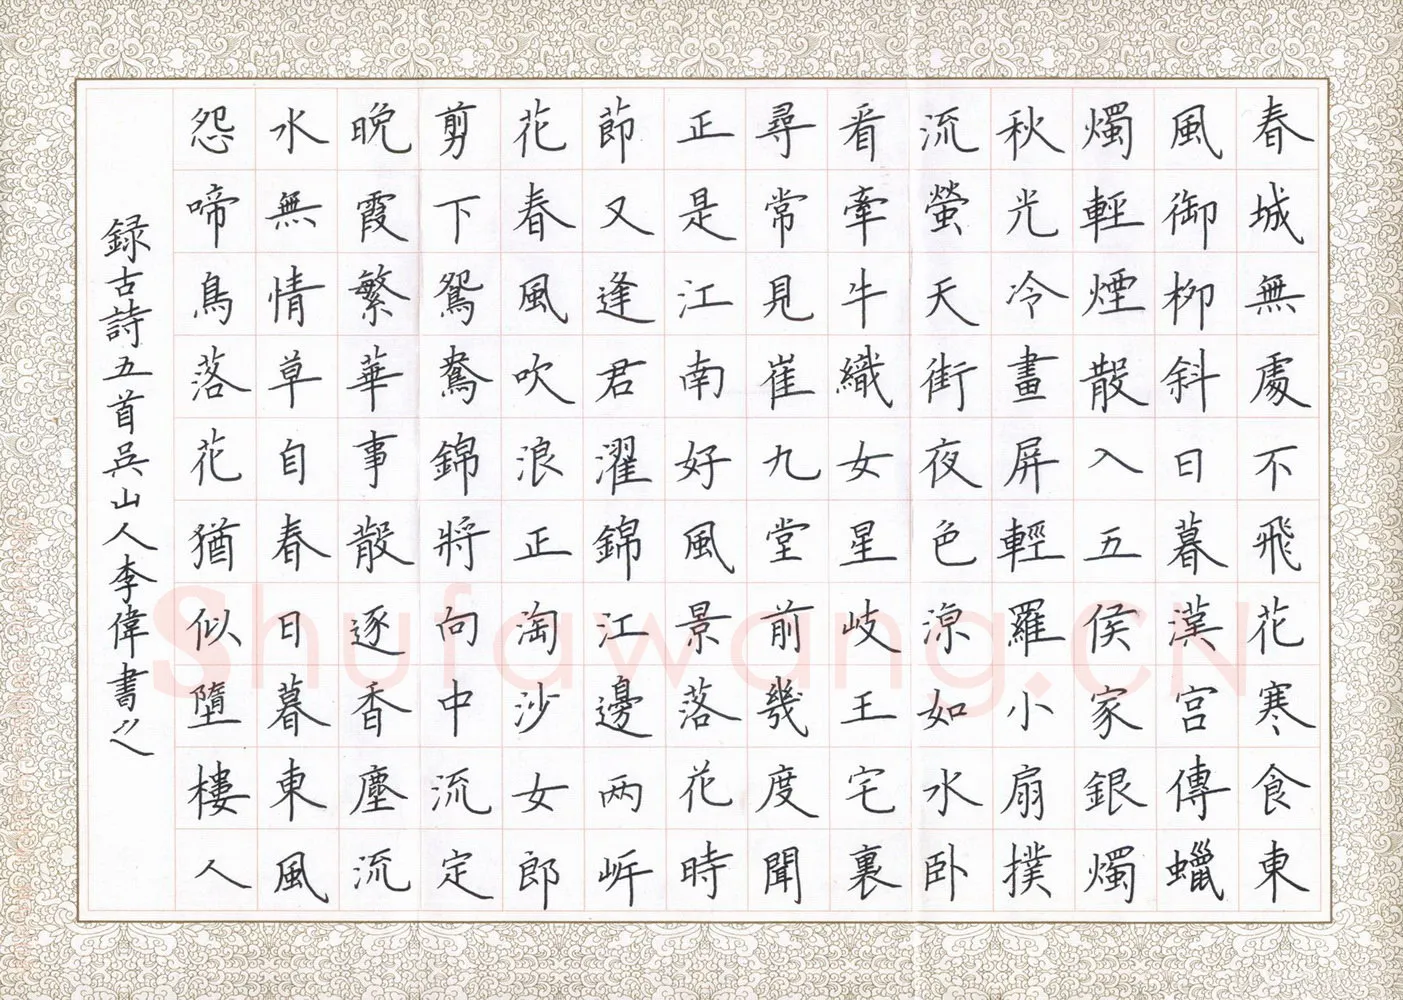 春城無處不飛花寒食東
風御柳斜日暮漢宮傳蠟
燭輕煙散入五侯家銀燭
秋光冷畫屏輕羅小扇撲
流螢天街夜色涼如水卧
看牽牛織女星岐王宅裏
尋常見崔九堂前幾度聞
正是江南好風景落花時
節又逢君濯錦江邊兩岍
花春風吹浪正淘沙女郎
剪下鴛鴦錦將向中流定
晚霞繁華事散逐香塵流
水無情草自春日暮東風
怨啼鳥落花猶似墮樓人
録古詩五首吳山人李偉書之
Shufawang.CN